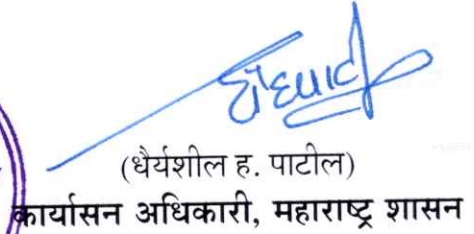 (धैर्यशील ह. पाटील)
कार्यासन अधिकारी, महाराष्ट्र शासन